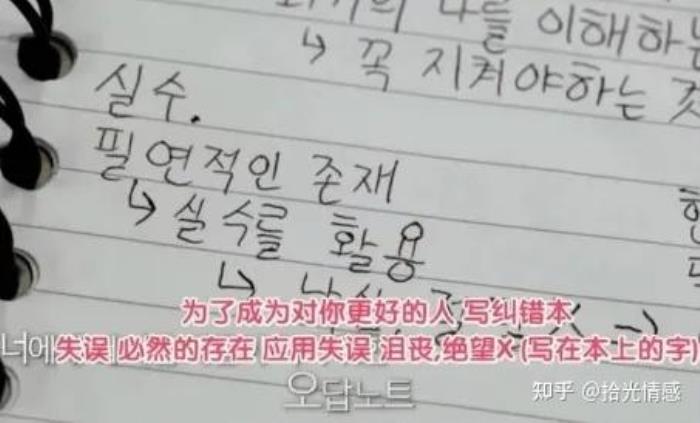 나를 이해하는
↳ 꼭 지켜야하는 것
실수.
필연적인 존재
↳ 실수를 활용
↳
X →
为了成为对你更好的人 写纠错本
너에
失误 必然的存在 应用失误 沮丧,绝望X (写在本上的字)
오답노트
知乎 @拾光情感